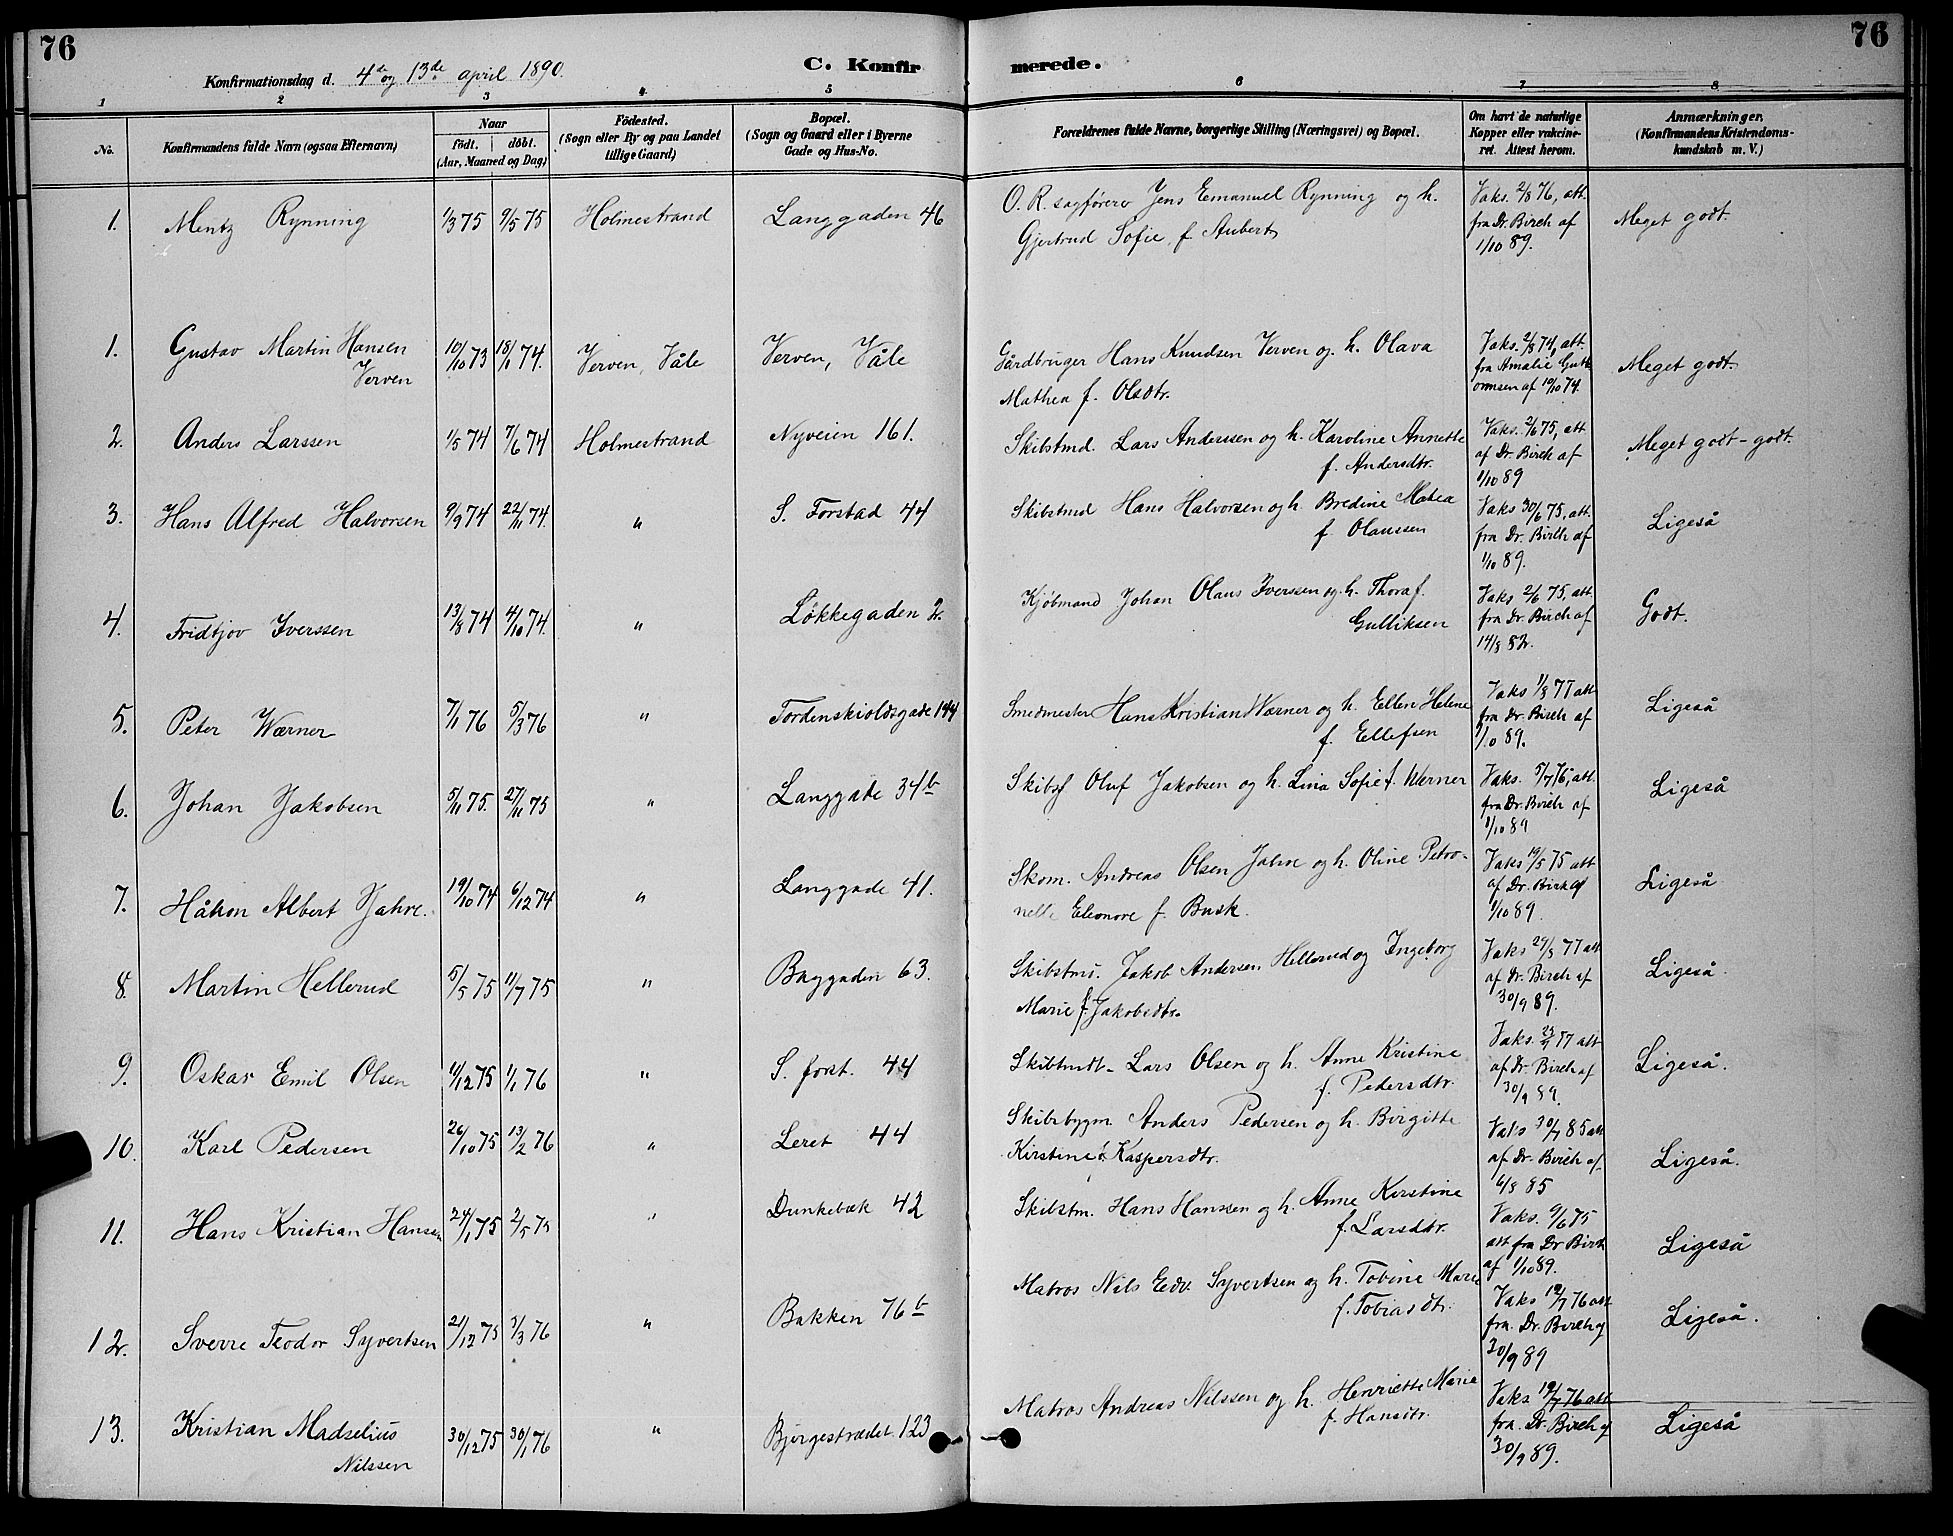 76
76
Konfirmationsdag d. 4de og 13de april 1890.
C. Konfirmerede.
1 2 3 4 5 6 7 8
No.
Konfirmandens fulde Navn (ogsaa Efternavn)
Naar
født. døbt.
(Aar, Maaned og Dag)
Födested.
(Sogn eller By og paa Landet
tillige Gaard)
Bopæl.
(Sogn og Gaard eller i Byerne
Gade og Hus-No.
Forældrenes fulde Navne, borgerlige Stilling (Næringsvei) og Bopæl.
Om havt de naturlige
Kopper eller vakcine-
ret. Attest herom.
Anmærkninger.
(Konfirmandens Kristendoms-
kundskab m. V.)
1. Mentz Rynning 1/3 75 9/5 75 Holmestrand Langgaden 46 O. R. sagfører Jens Emanuel Rynning og h. Vaks. 2/8 76, att.
Gjertrud Sofie, f. Aubert fra Dr. Birch af Meget godt.
1/10 89.
1. Gustav Martin Hansen 10/10 73 18/1 74. Verven, Våle Verven, Våle Gårdbruger Hans Knudsen Verven og h. Olava Vaks. 2/8 74, att.
Verven Mathea f. Olsdtr. fra Amalie Gutt- Meget godt.
ormsen af 10/10 74.
2. Anders Larssen 1/5 74 7/6 74 Holmestrand Nyveien 161. Skibstmd. Lars Anderssen og h. Karoline Annette Vaks. 2/6 75, att.
f. Andersdtr. af Dr. Birch af Meget godt - godt.
1/10 89
3. Hans Alfred Halvorsen 9/9 74 22/11 74. " S. Forstad 44 Skibstmd Hans Halvorsen og h. Bredine Matea Vaks 30/6 75, att.
f. Olaussen fra Dr. Birch af Ligeså
1/10 89.
4. Fridtjov Iverssen 13/8 74 4/10 74. " Løkkegaden 2. Kjøbmand Johan Olaus Iverssen og h. Thora f. Vaks 2/6 75, att.
Gulliksen fra Dr. Birch af Godt.
14/8 82.
5. Peter Wærner 7/1 76 5/3 76 " Tordenskioldsgade 144 Smedmester Hans Kristian Wærner og h. Ellen Helene Vaks 1/8 77 att
f. Ellefsen fra Dr. Birch af Ligeså
1/10 89.
6. Johan Jakobsen 5/11 75. 27/11 75 " Langgade 34b Skibsf Oluf Jakobsen og h. Lina Sofie f. Werner Vaks. 5/7 76, att.
fra Dr. Birch af Ligeså
1/10 89
7. Håkon Albert Jahre. 19/10 74 6/12 74 " Langgade 41. Skom. Andreas Olsen Jahre og h. Oline Petro- Vaks 19/5 75 att
nelle Eleonore f. Busk. af Dr. Birk af Ligeså
1/10 89.
8. Martin Hellerud 5/5 75 11/7 75 " Baggaden 63. Skibstmd. Jakob Andersen Hellerud og Ingeborg Vaks 29/8 77 att
Marie f. Jakobsdtr. af Dr. Birch af Ligeså.
30/9 89.
9. Oskar Emil Olsen 11/12 75 1/1 76 " S. forst. 44 Skibtmdt. Lars Olsen og h. Anne Kristine Vaks. 77 att
f. Pedersdtr. af Dr. Birch af Ligeså.
30/9 89.
10. Karl Pedersen 26/10 75 13/2 76 " Leret 44 Skibsbygm Anders Pedersen og h. Birgitte Vaks 30/7 85 att
Kirstine f. Kaspersdtr. af Dr. Birch af Ligeså.
6/8 85
11. Hans Kristian Hansen 24/1 75 2/5 75 " Dunkebæk 42 Skibstm. Hans Hanssen og h. Anne Kirstine Vaks. 9/6 75
f. Larsdtr. att fra Dr Birch Ligeså
af 1/10 89.
12. Sverre Teodor Syvertsen 21/12 75 5/3 76 " Bakken 76b Matros Nils Edv. Syvertsen og h. Tobine Marie Vaks 12/7 76 att
f. Tobiasdtr. fra. Dr. Birch af Ligeså.
30/9 89
13. Kristian Madselius 30/12 75 30/1 76 " Bjørgestrædet 123 Matros Andreas Nilssen og h. Henriette Marie Vaks 12/7 76 att
Nilssen f. Hansdtr. fra. Dr. Birch af Ligeså
30/9 89.